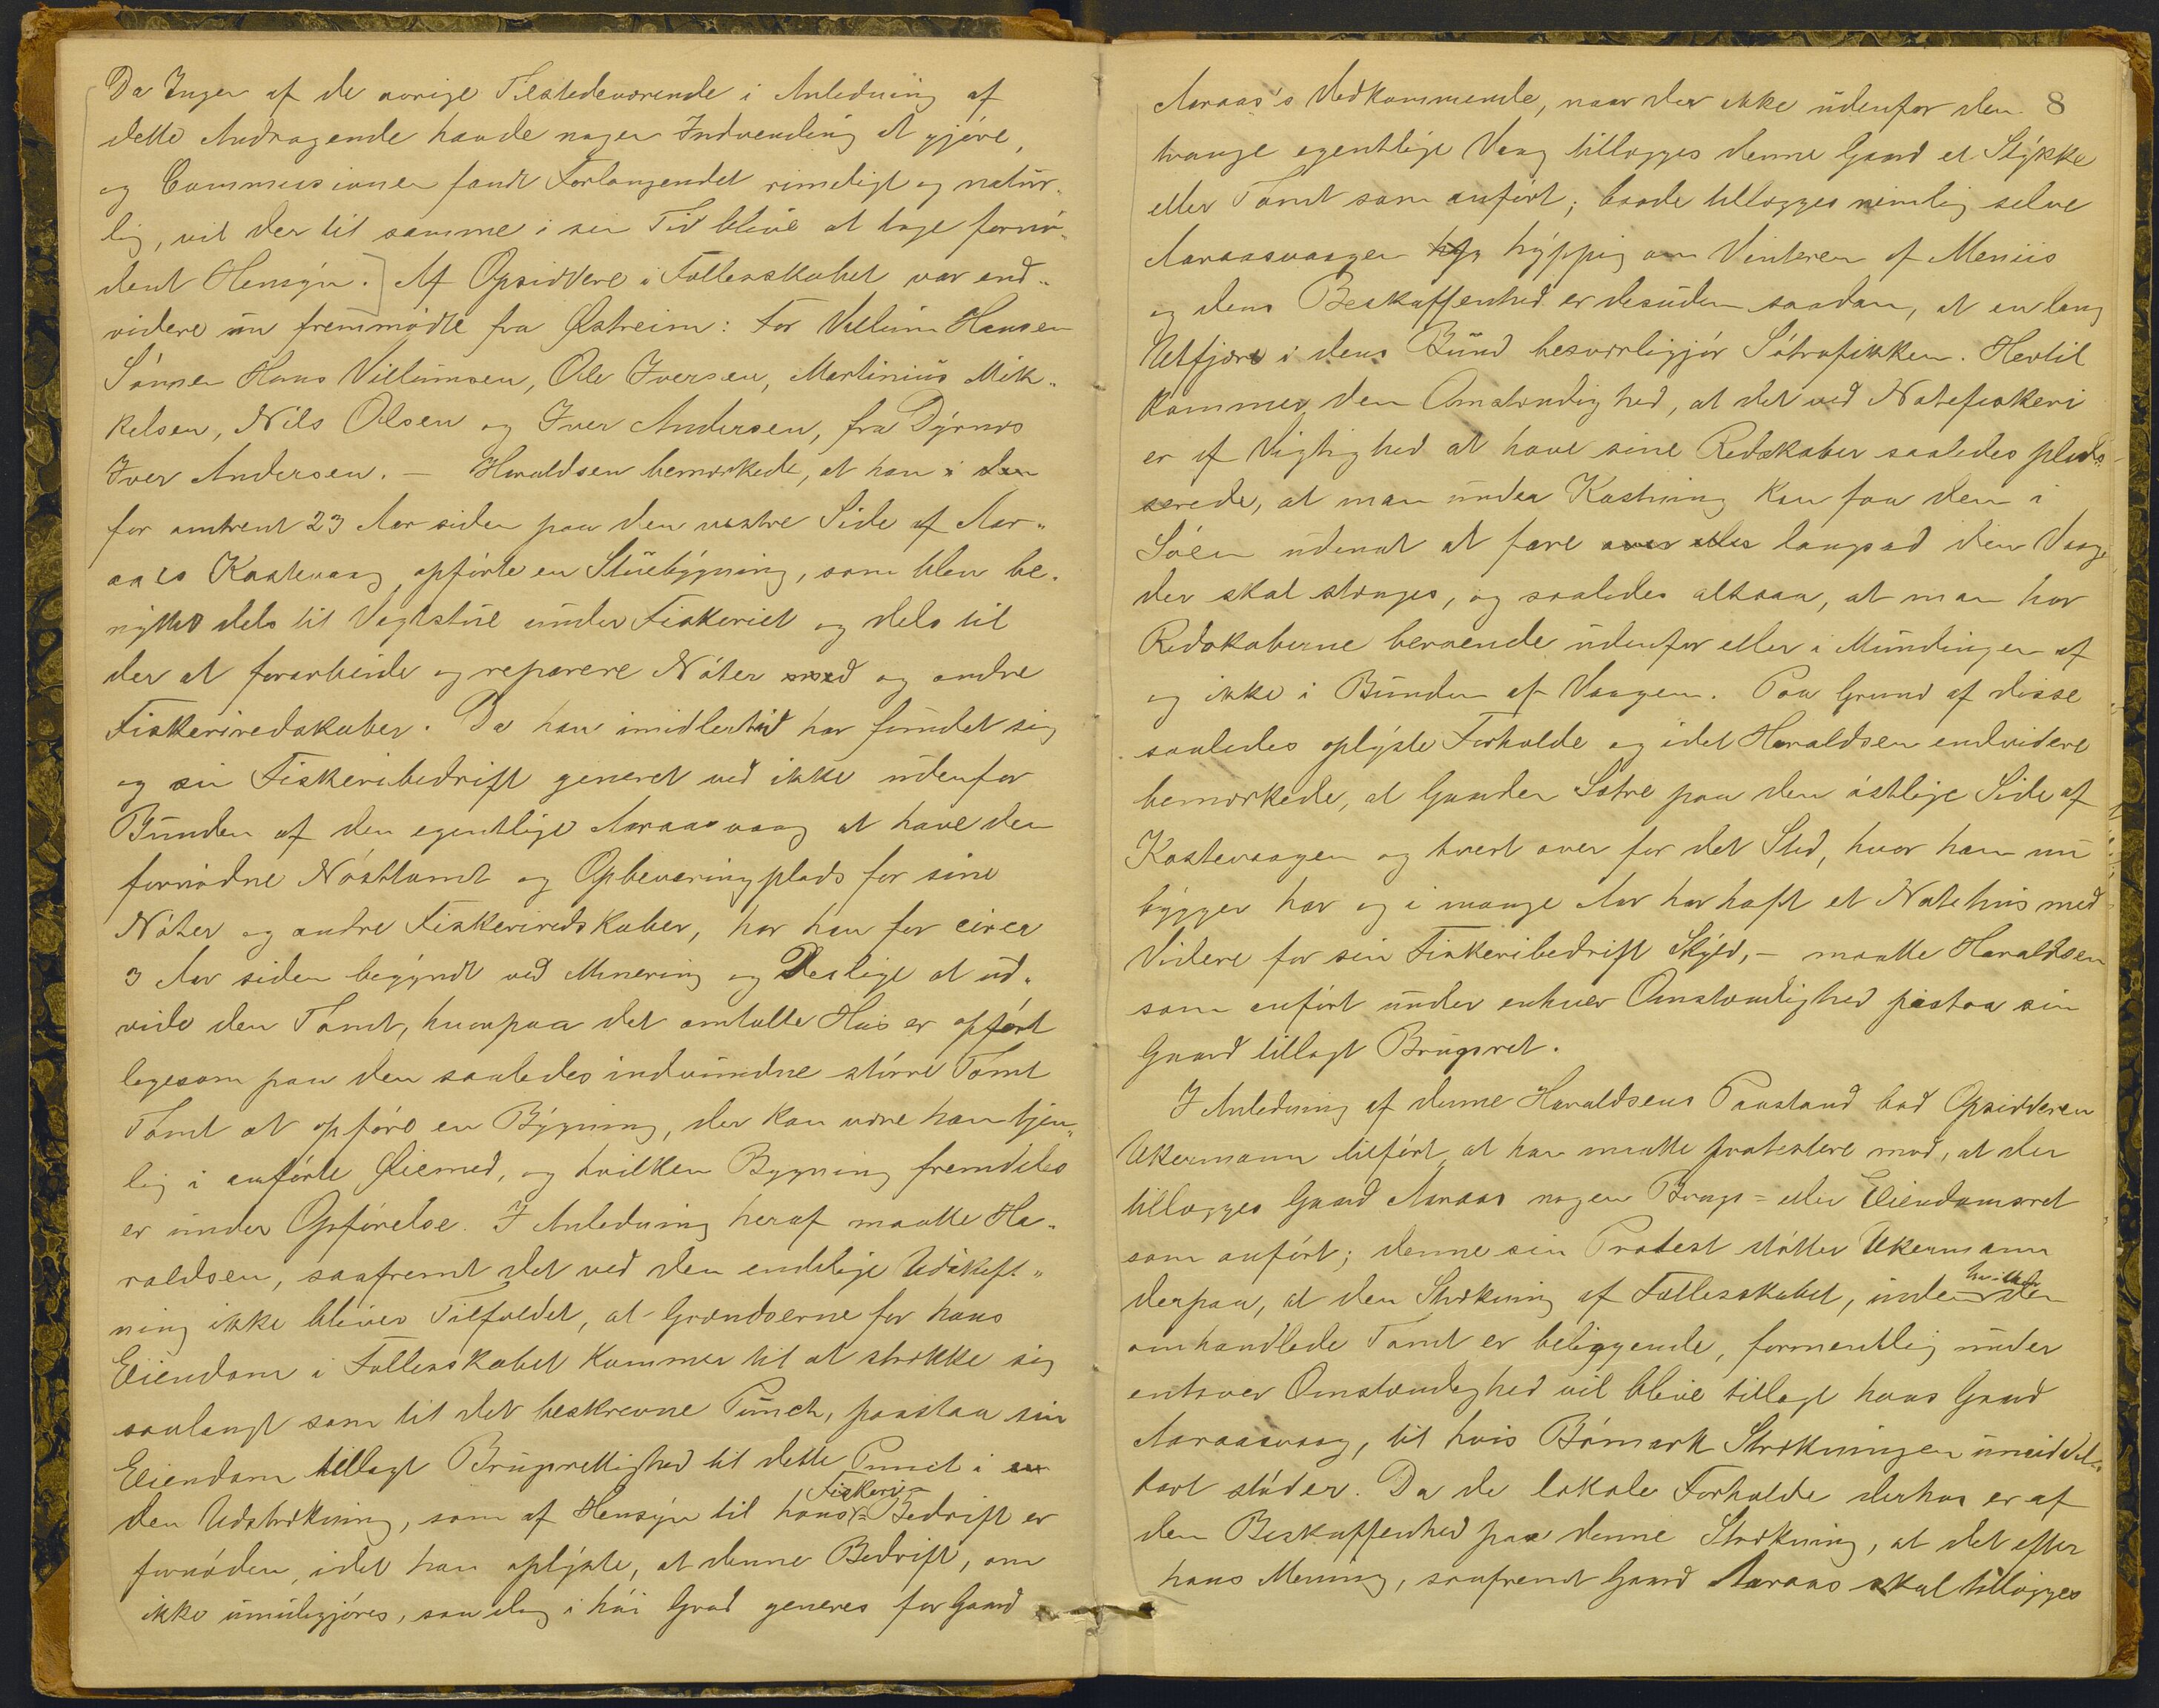 Da Ingen af de øvrige Tilstedeværende i Anledning af
dette Andragende havde nogen Indvending at gjøre,
og Commissionen fandt Forlangendet rimeligt og natur-
lig, vil der til samme i sin Tid blive at tage fornø-
dent Hensyn.] Af Opsiddere i Fællesskabet var end-
videre nu fremmødte fra Østreim: For Villum Hansen
Sønnen Hans Villumsen, Ole Iversen, Martinius Mik-
kelsen, Nils Olsen og Iver Andersen, fra Dyrnes
Iver Andersen. – Haraldsen bemærkede, at han i den
for omtrent 23 Aar siden paa den vestre Side af Aar-
aas Kastevaag opførte en Stuebygning, som blev be-
nyttet dels til Vagtstue under Fiskeriet og dels til
der at forarbeide og reparere Nøter med og andre
Fiskeriredskaber. Da han imidlertid har fundet sig
og sin Fiskeribedrift generet ved ikke udenfor
Bunden af den egentlige Aaraasvaag at have den
fornødne Nøsttomt og Opbevaringplads for sine
Nøter og andre Fiskeriredskaber, har han for circa
3 Aar siden begyndt ved Minering og Deslige at ud-
vide den Tomt, hvorpaa det omtalte Hus er opført
ligesom paa den saaledes indvundne større Tomt
Tomt at opføre en Bygning, der kan være ham tjen-
lig i anførte Øiemed, og hvilken Bygning fremdeles
er under Opførelse. I Anledning heraf maatte Ha-
raldsen, saafremt det ved den endelige Udskift-
ning ikke bliver Tilfældet, at Grændserne for hans
Eiendom i Fællesskabet kommer til at strække sig
saalangt som til det beskrevne Punct, paastaa sin
Eiendom tillagt Brugsrettighed til dette Punct i en
den Udstrækning, som af Hensyn til hans Fiskeri-Bedrift er
fornøden, idet han oplyste, at denne Bedrift, om
ikke umuliggjøres, saa dog i høi Grad generes for Gaard
8
Aaraas's Vedkommende, naar der ikke udenfor den
trange egentlige Vaag tillægges denne Gaard et Stykke
eller Tomt som anført; baade tillægges nemlig selve
Aaraasvaagen hyp hyppig om Vinteren af Meniis
og dens Beskaffenhed er desuden saadan, at en lang
Utfjære i dens Bund besværliggjør Søtrafikken. Hertil
kommer den Omstændighed, at det ved Notefiskeri
er af Vigtighed at have sine Redskaber saaledes plads-
serede, at man under Kastning kan faa dem i
Søen udenat at fare over eller langsad den Vaag
der skal stænges, og saaledes altsaa, at man har
Redskaberne beroende udenfor eller i Mundingen af
og ikke i Bunden af Vaagen. Paa Grund af disse
saaledes oplyste Forholde og idet Haraldsen endvidere
bemærkede, at Gaarden Sætre paa den østlige Side af
Kastevaagen og tvert over for det Sted, hvor han nu
bygger har og i mange Aar har haft et Notehus med
Videre for sin Fiskeribedrift Skyld, – maatte Haraldsen
som anført under enhver Omstændighed paastaa sin
Gaard tillagt Brugsret.
I Anledning af denne Haraldsens Paastand bad Opsidderen
Ukermann tilført, at han maatte protestere mod, at der
tillægges Gaard Aaraas nogen Brugs- eller Eiendomsret
som anført; denne sin Protest støtter Ukermann
derpaa, at den Strækning af Fællesskabet, inden hvilken den
omhandlede Tomt er beliggende, formentlig under
enhver Omstændighed vil blive tillagt hans Gaard
Aaraasvaag, til hvis Bømark Strækningen umiddel-
bart støder. Da de lokale Forholde derhos er af
den Beskaffenhed paa denne Strækning, at det efter
hans Mening, saafremt Gaard Aaraas skal tillægges